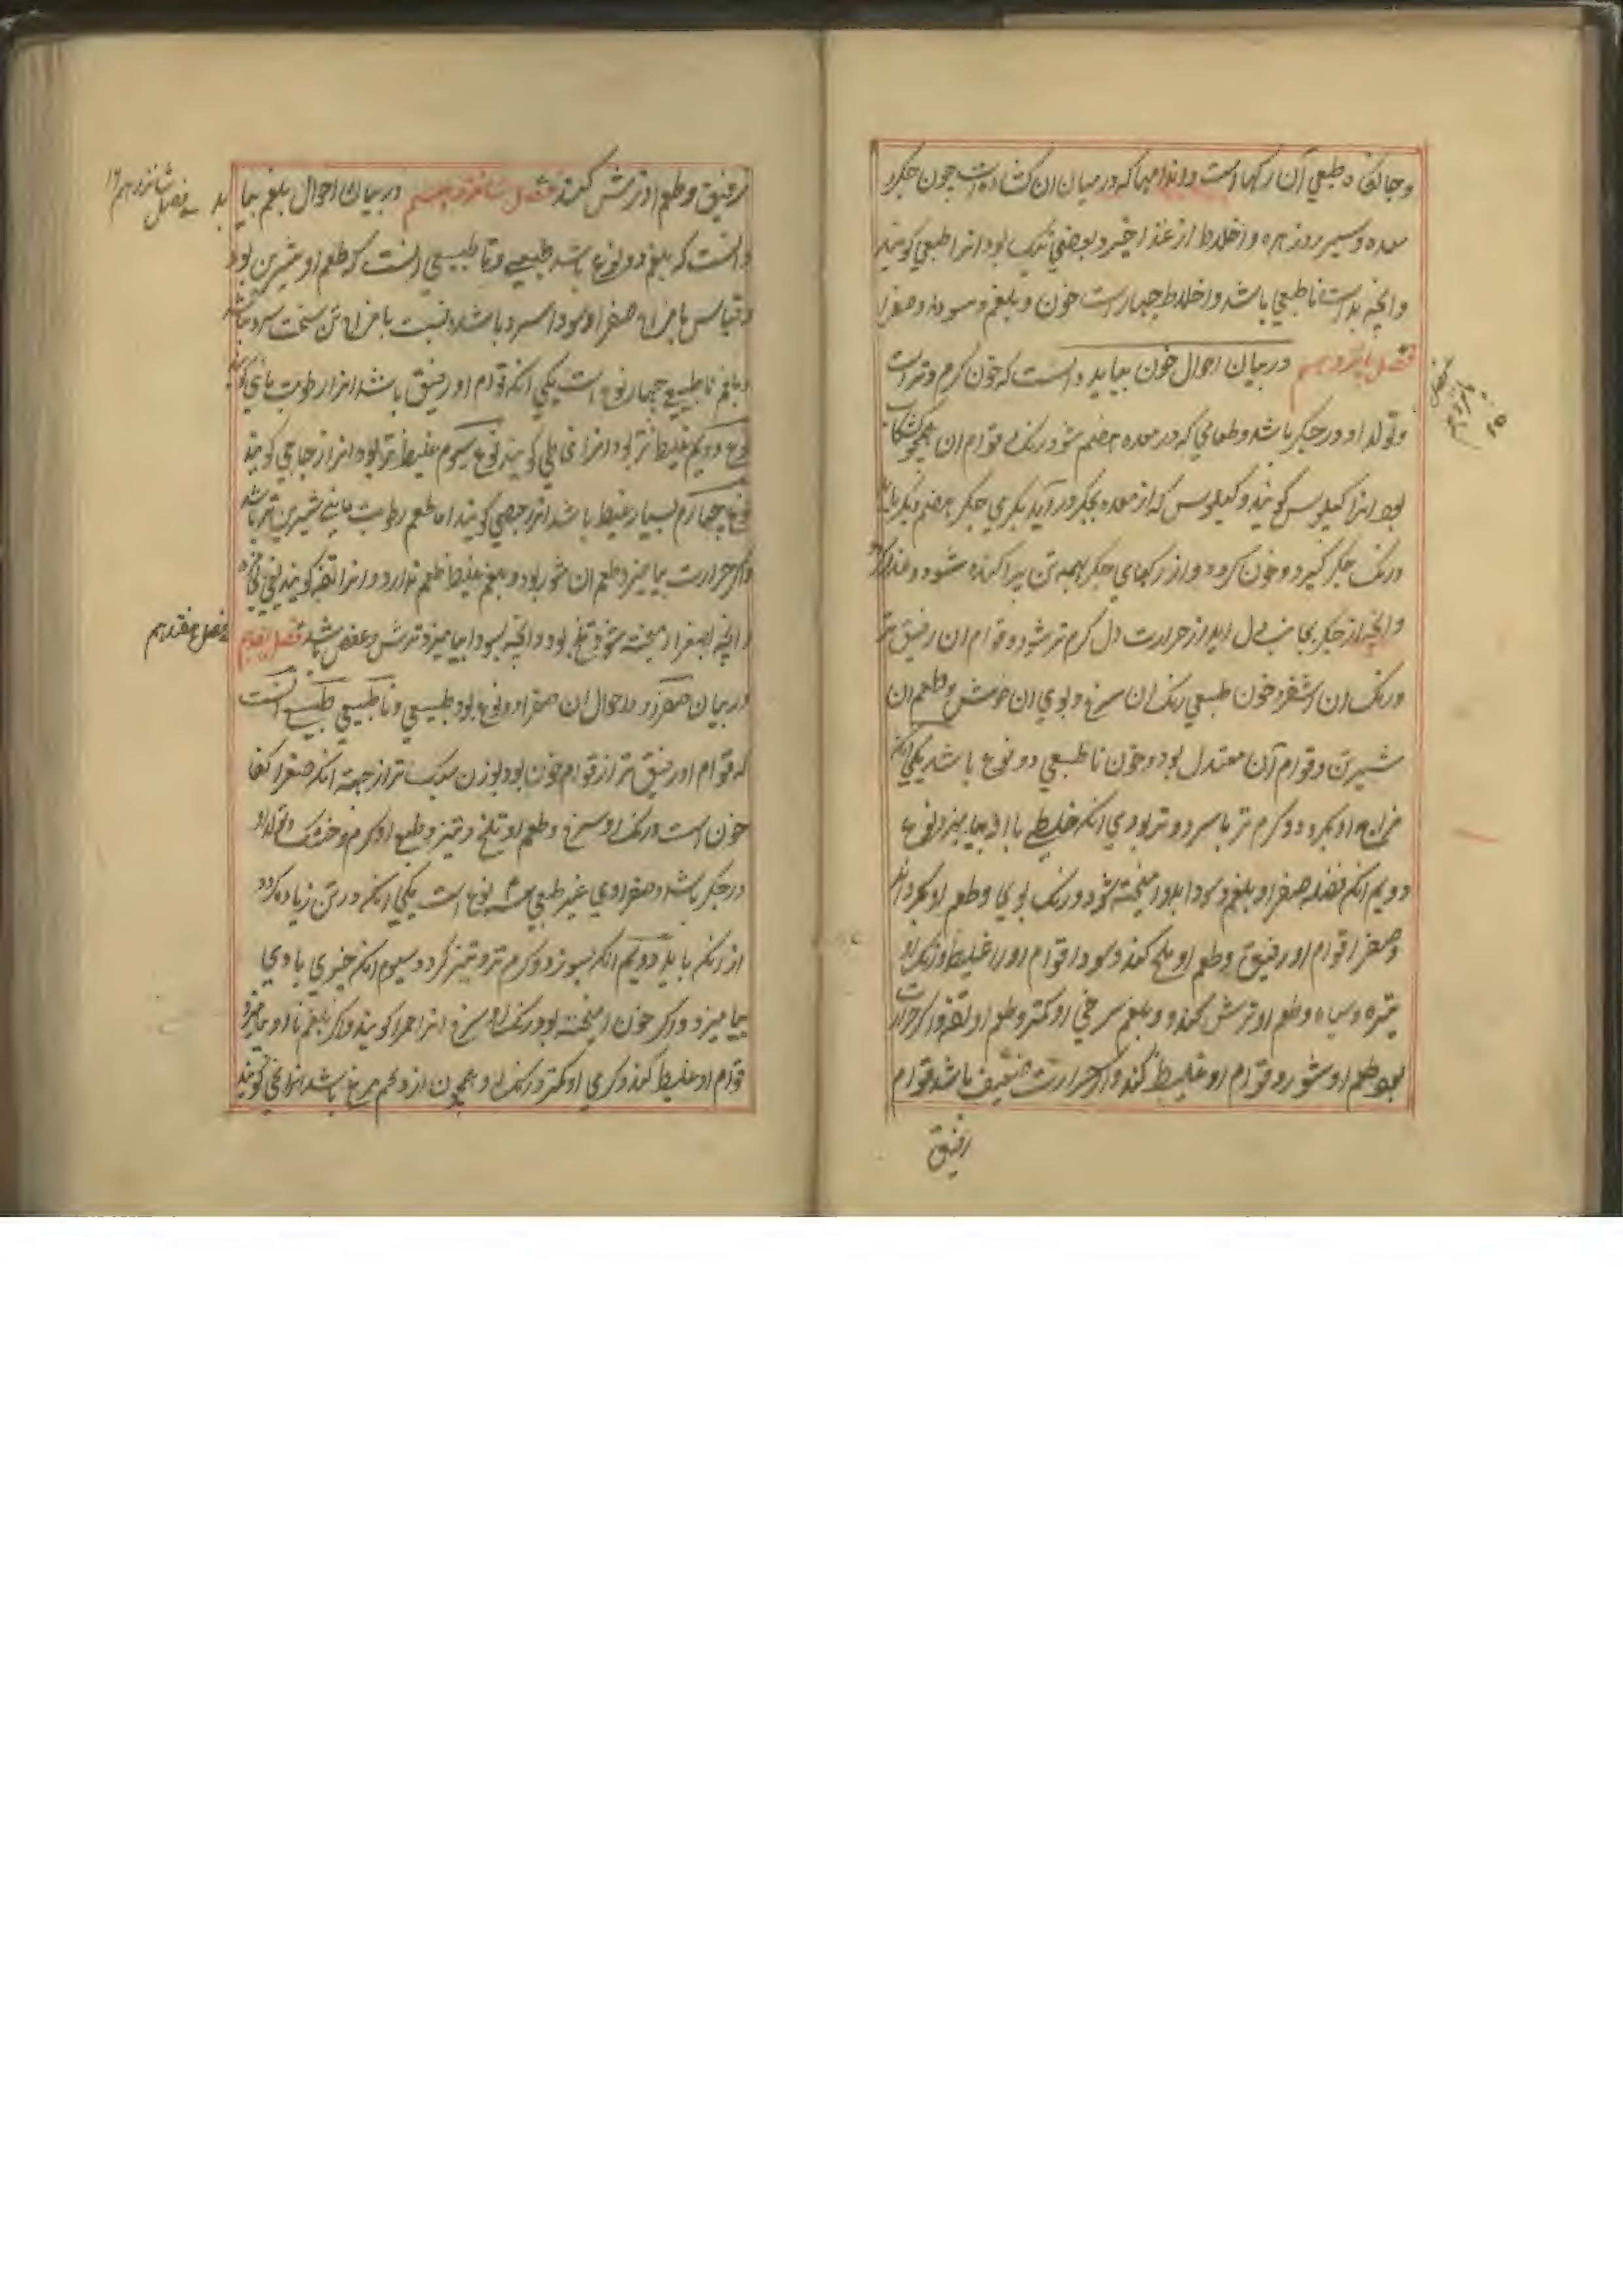 و جایگاه طبعی آن رکهااست و اندامها که در میان آن کشاده است چون جکر
معده و سپرز و زهره و اخلاط از غذا خیزد و بعضی نیک بود انرا طبعی کویند
و انچه بد است ناطبعی باشد و اخلاط چهارست خون و بلغم و سودا و صفرا
فصل پانزدهم در بیان احوال خون بباید دانست که خون کرم و تر است
و تولد او در جکر باشد و طعامی که در معده هضم شود رنک و قوام آن همچو کشکاب
بود انرا کیلوس کویند و کیلوس که از معده بجکر در آید بکرمی جکر هضم دیکر یابد
و رنک جکر کیرد و خون کردد و از رکهای جکر بهمه تن پراکنده شود و غذا کردد
و انچه از جکر بجانب دل اید از حرارت دل کرم تر شود و قوام آن رفیق تر
و رنک آن اشقر و خون طبعی رنک ان سرخ و بوی ان خوش و طعم ان
شیرین و قوام آن معتدل بود و خون ناطبعی دو نوع باشد یکی انکه
مزاج او بکردد و کرم تر یا سرد و تر بود بی انکه خلطی با او بیامیزد نوع
دویم انکه فضله صفرا و بلغم و سودا بدو امیخته شود و رنک بوی و طعم او بکرداند
و صفرا قوام او رفیق و طعم او تلخ کند و سودا قوام او را غلیظ و رنک او
تیره و سیاه و طعم او ترش کند و بلغم سرخی او کمتر و طعم او تفه و اکر حرارت
بود طعم او شور و قوام او غلیظ کند و اکر حرارت ضعیف باشد قوام
رفیق
فصل پانزدهم
۱۵
رفیق و طعم او ترش کند فصل شانزدهم در بیان احوال بلغم بباید
دانست که بلغم دو نوع باشد طبیعی و ناطبیعی انست که طعم او شیرین بود
و قیاس با مزاج صفرا و سودا سرد باشد و نسبت با مزاج تن سخت سرد نباشد
و بلغم ناطبیعی چهار نوع است یکی انکه قوام او رفیق باشد انرا رطوبت مایی کویند
نوع دویم غلیظ تر بود انرا مخاطی کویند نوع سیوم غلیظ تر بود انرا زجاجی کویند
نوع چهارم بسیار غلیظ باشد انرا جصی کویند اما طعم رطوبت مایی شیرین تر باشد
و اکر حرارت بیامیزد طعم ان شور بود و بلغم غلیظ طعم ندارد و انرا تفه کویند
و انچه بصفرا امیخته شود تلخ بود و انچه بسودا بیامیزد ترش و عفص باشد فصل هفدهم
در بیان صفرا و احوال ان صفرا دو نوع بود طبیعی و ناطبیعی طبیعی انست
که قوام او رفیق تر از قوام خون بود و بوزن سبک تر از جهة انکه صفرا کف
خون است و رنک او سرخ و طعم او تلخ و تیز و طبع او کرم و خشک و تولد او
در جکر باشد و صفراوی غیر طبعی سه نوع است یکی انکه در تن زیاده کردد
از انکه باید دویم انکه بسوزد و کرم تر و تیز کردد سیوم انکه چیزی با وی
بیامیزد و اکر خون امیخته بود رنک او سرخ انرا حمرا کویند و اکر بلغم با او بیامیزد
قوام او غلیظ کند و کرمی او کمتر و رنک او همچون زرده تخم مرغ باشد انرا محی کویند
فصل شانزدهم ۱۶
فصل هفدهم